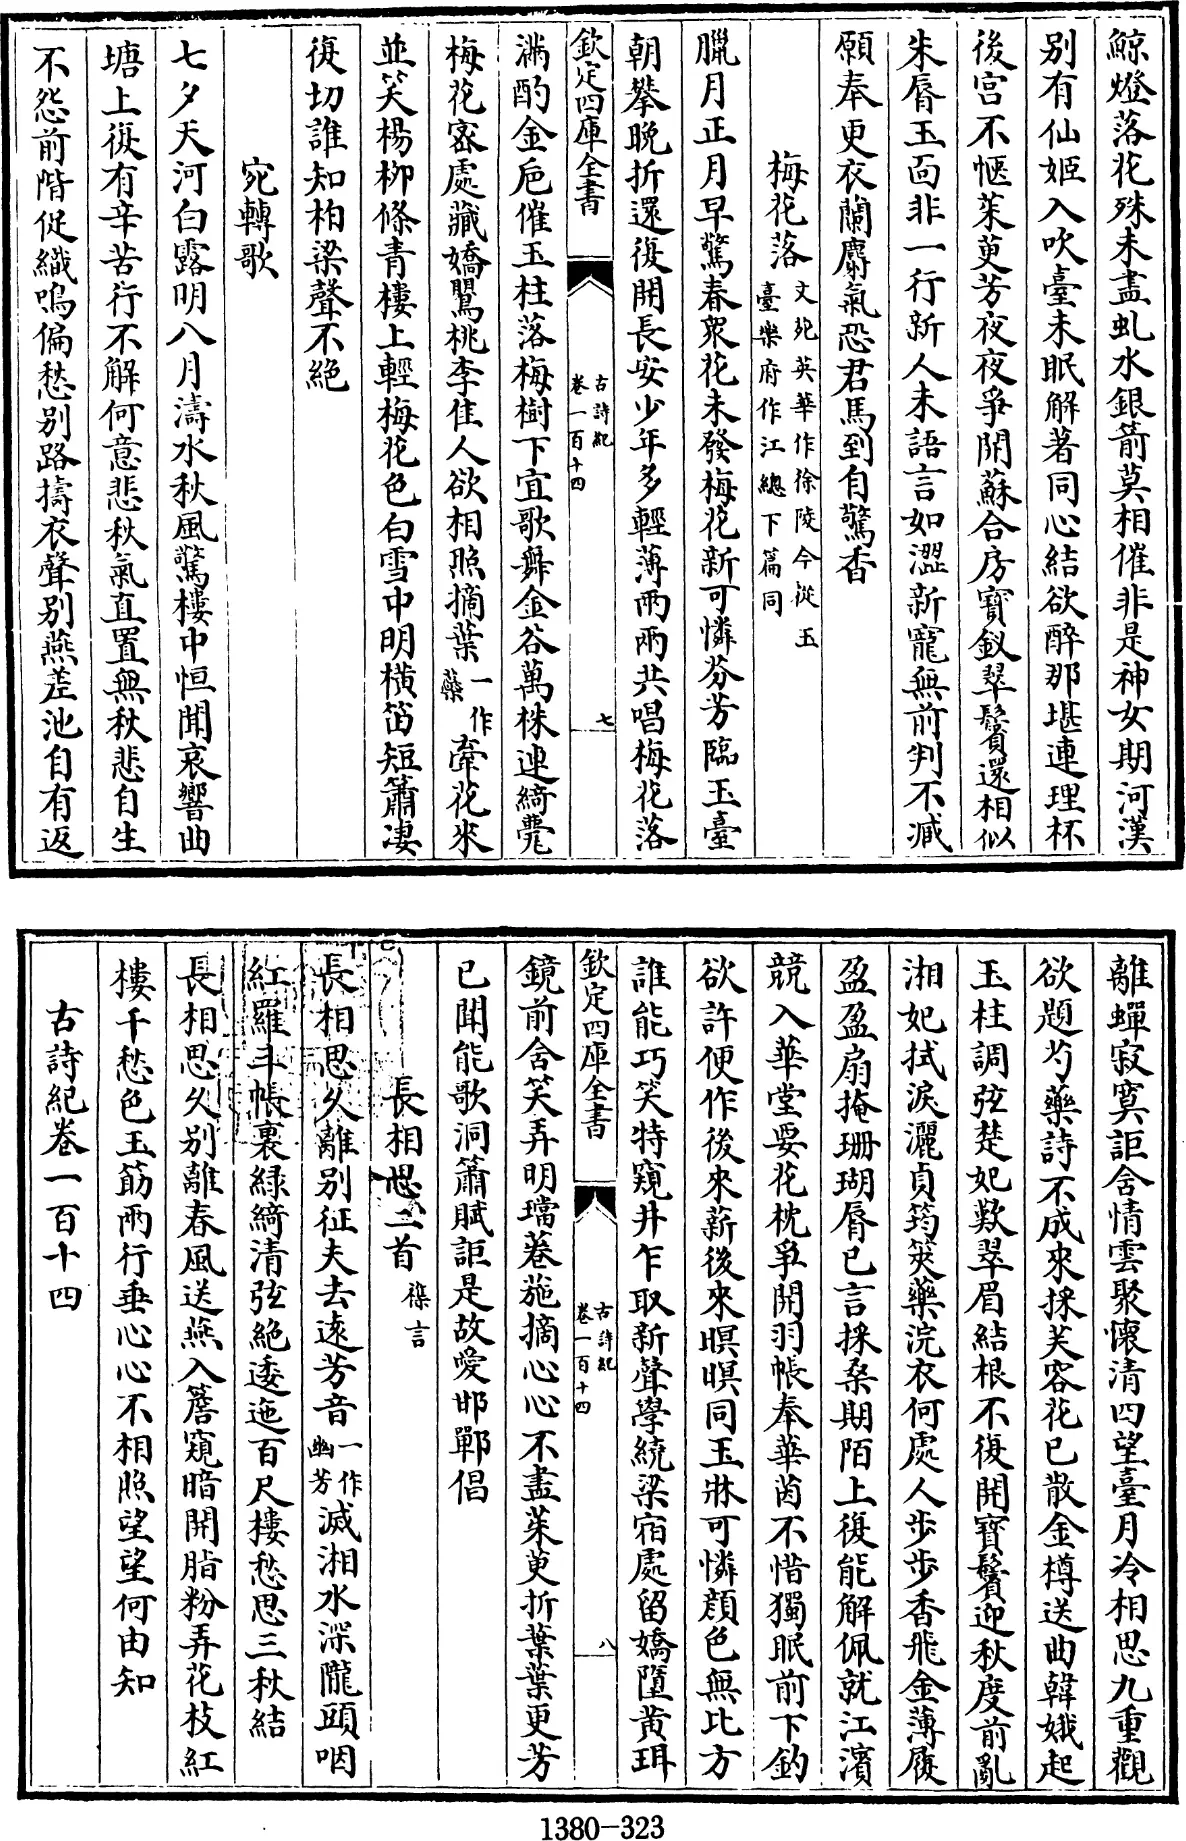 鯨燈落花殊未盡虬水銀箭莫相催非是神女期河漢
别有仙姬入吹臺未眠解著同心結欲醉那堪連理杯
後宫不愜茱萸芳夜夜爭開蘇合房寳釵翠鬢還相似
朱脣玉面非一行新人未語言如澀新寵無前判不減
願奉更衣蘭麝氣恐君馬到自驚香
梅花落文苑英華作徐陵今從玉
臺樂府作江總下篇同
臘月正月早驚春衆花未發梅花新可憐芬芳臨玉臺
朝攀晚折還復開長安少年多輕薄兩兩共唱梅花落
欽定四庫全書
古詩紀
卷一百十四
七
滿酌金巵催玉柱落梅樹下宜歌舞金谷萬株連綺甍
梅花密處藏嬌鸎桃李佳人欲相照摘葉一作
蘂牽花來
並笑楊柳條青樓上輕梅花色白雪中明横笛短簫凄
復切誰知柏梁聲不絶
宛轉歌
七夕天河白露明八月濤水秋風驚樓中恒聞哀響曲
塘上復有辛苦行不解何意悲秋氣直置無秋悲自生
不怨前階促織鳴偏愁别路擣衣聲别燕差池自有返
離蟬寂寞詎含情雲聚懷清四望臺月冷相思九重觀
欲題芍藥詩不成來採芙容花已散金樽送曲韓娥起
玉柱調弦楚妃歎翠眉結根不復開寳鬢迎秋度前亂
湘妃拭淚灑貞筠筴藥浣衣何處人步步香飛金薄履
盈盈扇掩珊瑚脣已言採桑期陌上復能解佩就江濱
競入華堂要花枕爭開羽帳奉華茵不惜獨眠前下釣
欲許便作後來薪後來暝暝同玉牀可憐顔色無比方
誰能巧笑特窺井乍取新聲學繞梁宿處留嬌墮黄珥
欽定四庫全書
古詩紀
卷一百十四
八
鏡前含笑弄明璫菤葹摘心心不盡茱萸折葉葉更芳
已聞能歌洞簫賦詎是故愛邯鄲倡
長相思二首雜言
長相思久離别征夫去遠芳音一作
幽芳滅湘水深隴頭咽
紅羅斗帳裏緑綺清弦絶逶迤百尺樓愁思三秋結
長相思久别離春風送燕入簷窺暗開脂粉弄花枝紅
樓千愁色玉筯兩行垂心心不相照望望何由知
古詩紀卷一百十四
1380-323